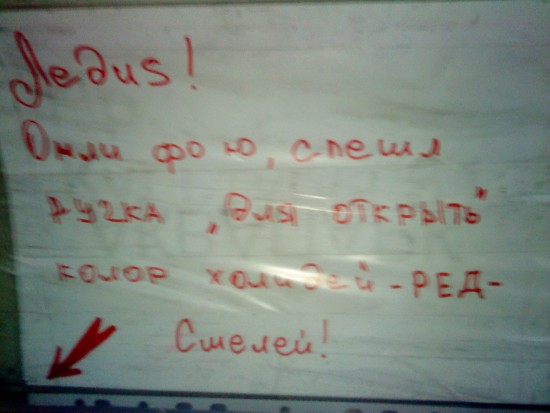 Ледиs!
Онли фо ю, спешл
ручка „Для открыть"
колор холидей -РЕД-
Смелей!